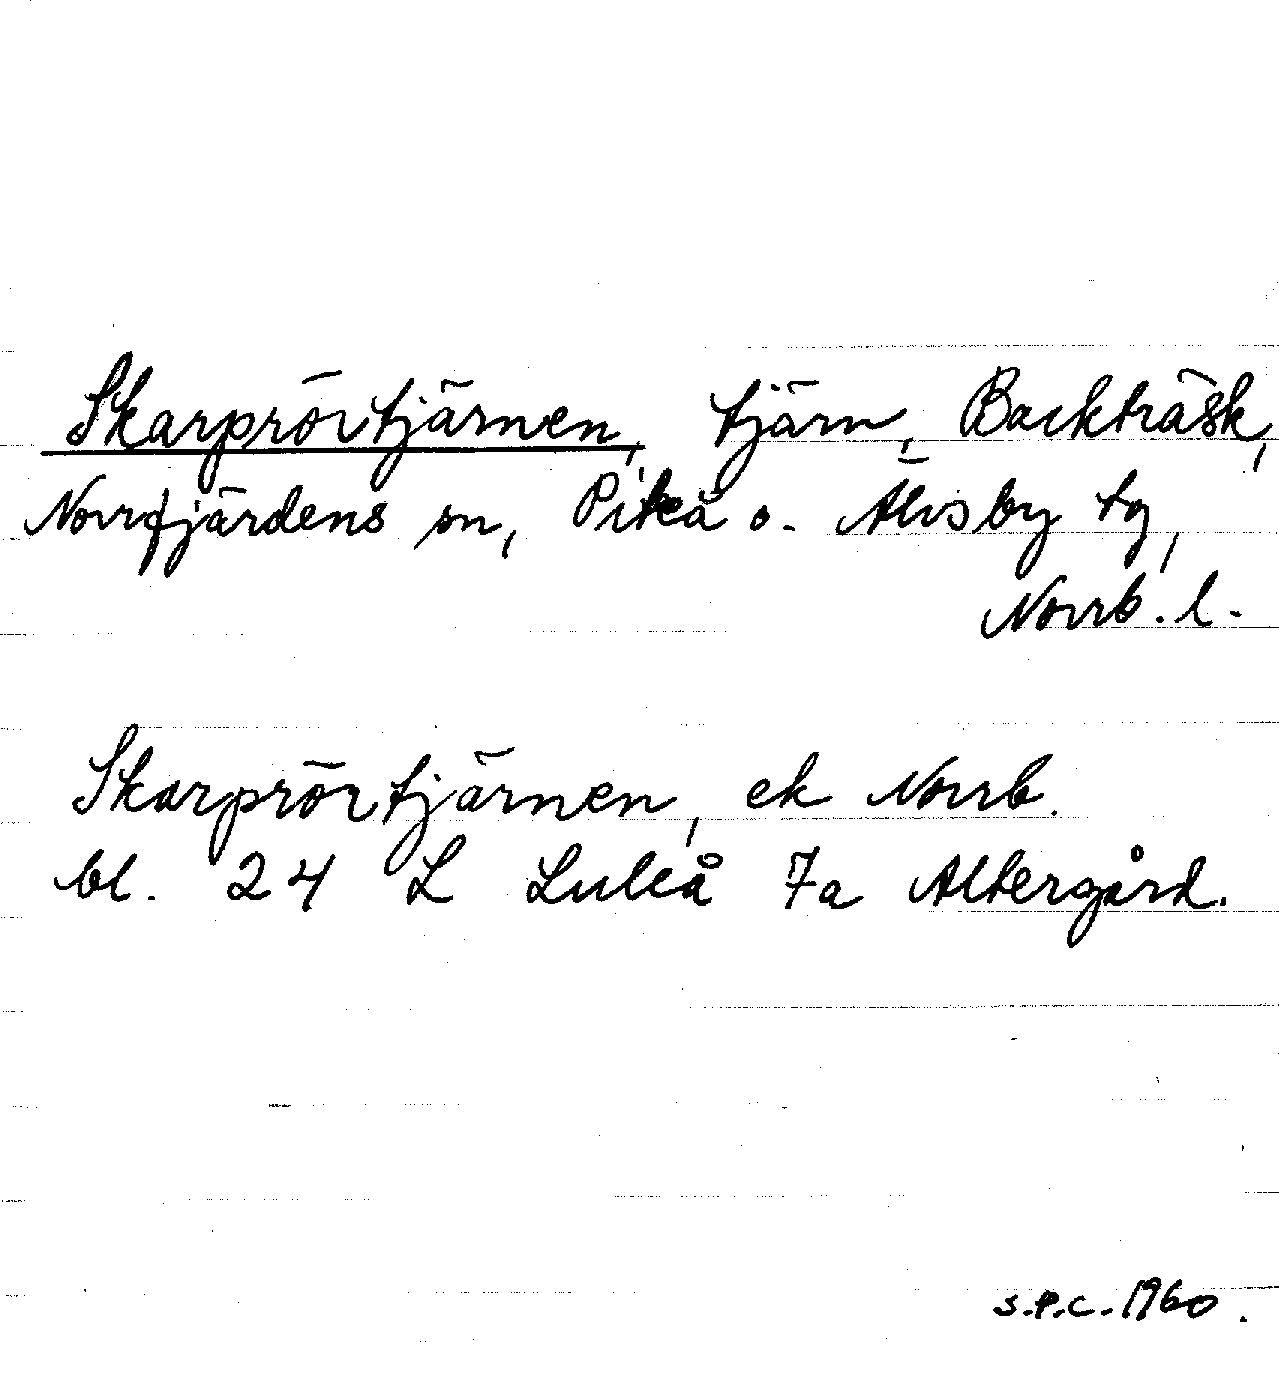 Skarprörtjärnen, tjärn, Backträsk,
Norrfjärdens sn, Piteå o. Älvsby tg,
Norrb. l.
Skarprörtjärnen, ek Norrb.
bl. 24 L Luleå 7a Altergård.
S.P.C. 1960.